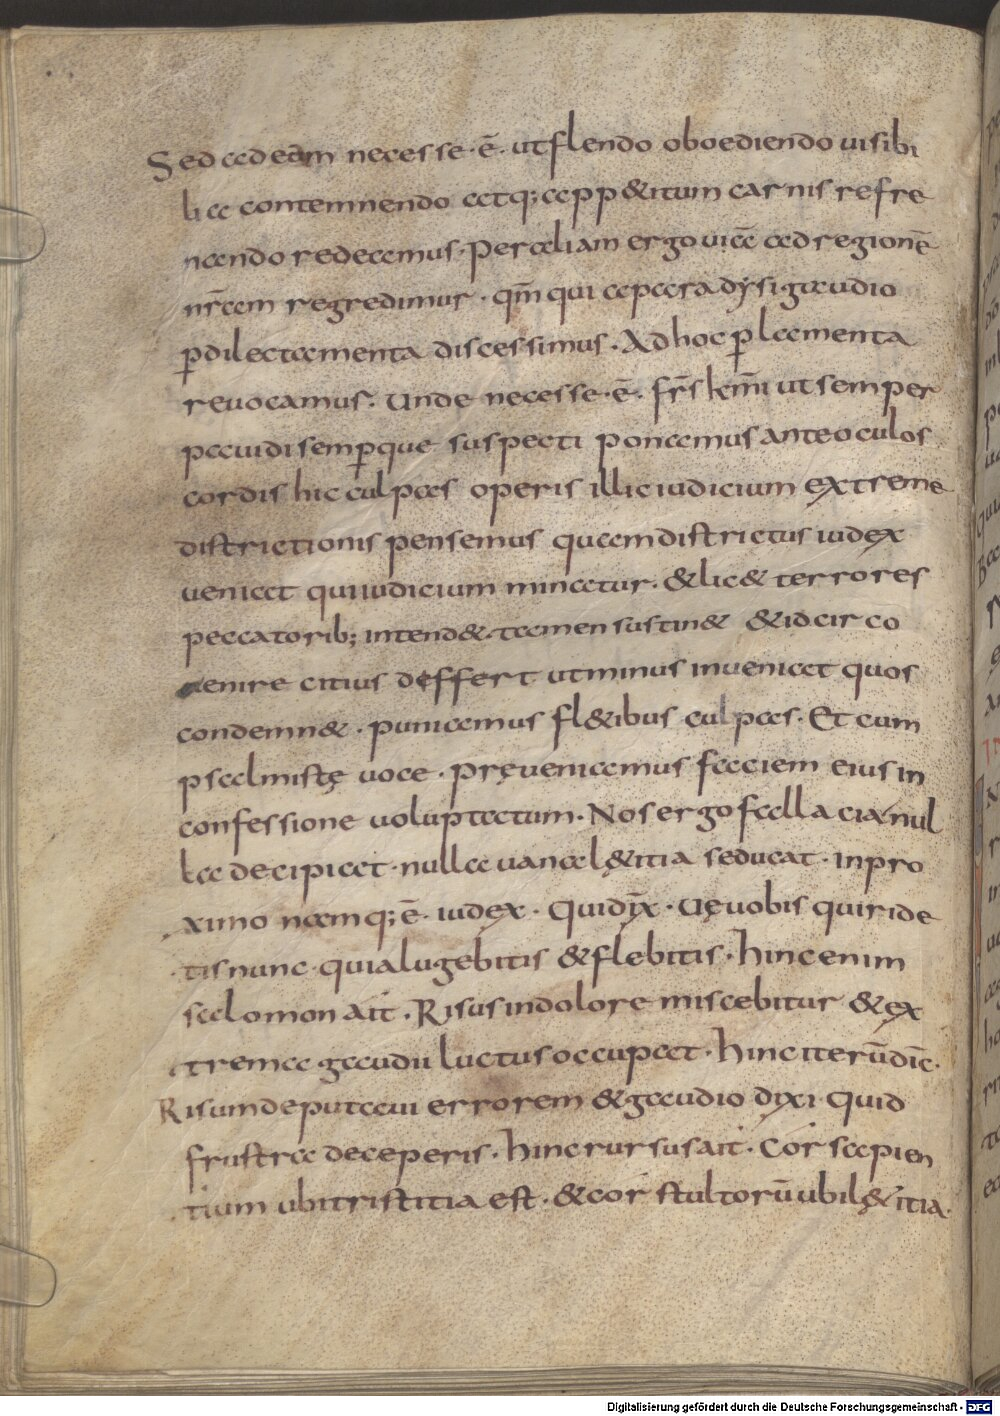 Sed ad eam necesse·ē· ut flendo oboediendo uisibi
lia contemnendo atq; app&itum carnis refre
nando redeamus· Per aliam ergo uiā ad regionē
nr̄am regredimur· qm̄ qui a paradysi gaudio
ꝑ dilectamenta discessimus· Ad hoc ꝑ lamenta
reuocamur· Unde necesse·ē· fr̄s km̄i ut semper
pauidi semꝑque suspecti ponamus ante oculos
cordis hic culpas operis illic iudicium extreme
districtionis pensemus quam districtus iudex
ueniat qui iudicium minatur· & lic& terrores
peccatorib; intend&· tamen sustin& & idcirco
uenire citius deffert ut minus inueniat quos
condemn&· puniamus fl&ibus culpas· Et cum
psalmistę uoce· pręueniamus faciem eius in
confessione uoluptatum· Nos ergo fallacia nul
la decipiat· nulla uana lętitia seducat· in pro
ximo namq;·ē· iudex· Qui dix̄· Uę uobis qui ride
tis nunc· quia lugebitis & flebitis· hinc enim
salomon ait· Risus in dolore miscebitur & ex
trema gaudii luctus occupat· hinc iterū dic̄·
Risum deputaui errorem & gaudio dixi· Quid
frustra deceperis· hinc rursus ait· Cor sapien
tium ubi tristitia est· & cor stultorū ubi lętitia·
Digitalisierung gefördert durch die Deutsche Forschungsgemeinschaft - DFG